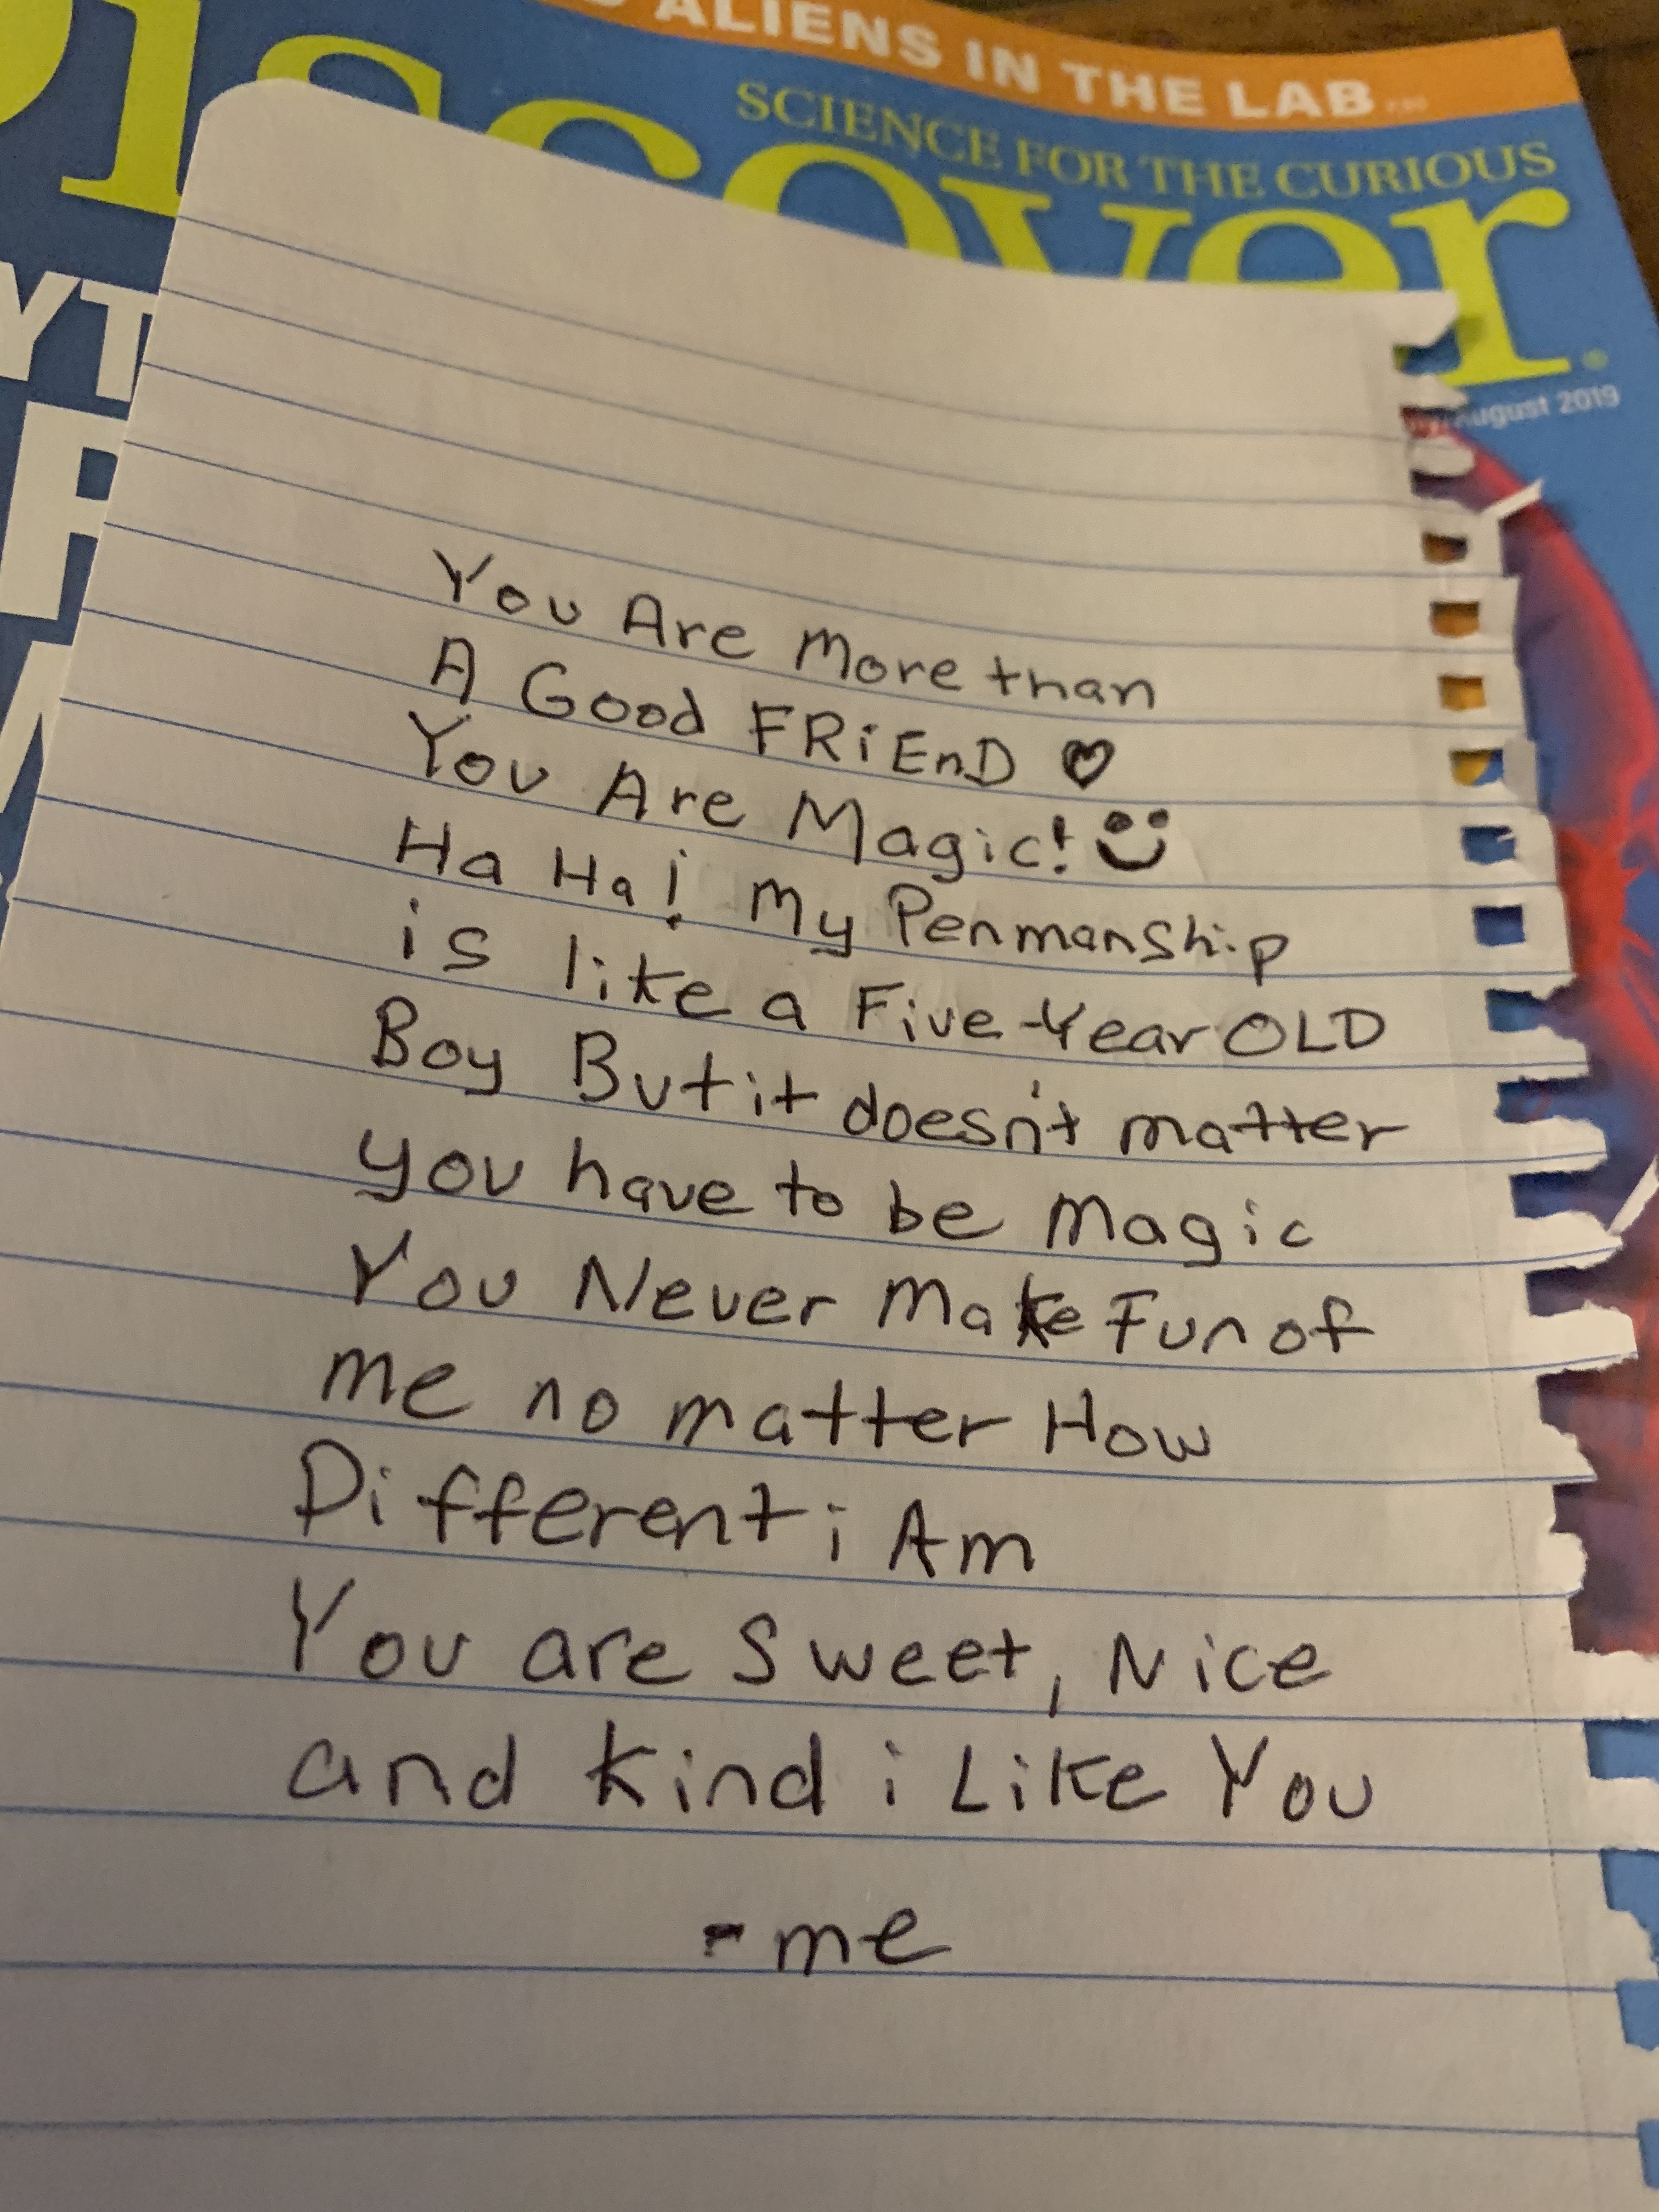 ALIENS IN THE LAB
SCIENCE FOR THE CURIOUS
Discover
August 2019
You Are More than
A Good FRiEnD ♡
You Are Magic! 
Ha Ha! My Penmanship
is like a Five-Year OLD
Boy But it doesn't matter
you have to be Magic
You Never Make Fun of
me no matter How
Different i Am
You are Sweet, Nice
and kind i Like You
- me